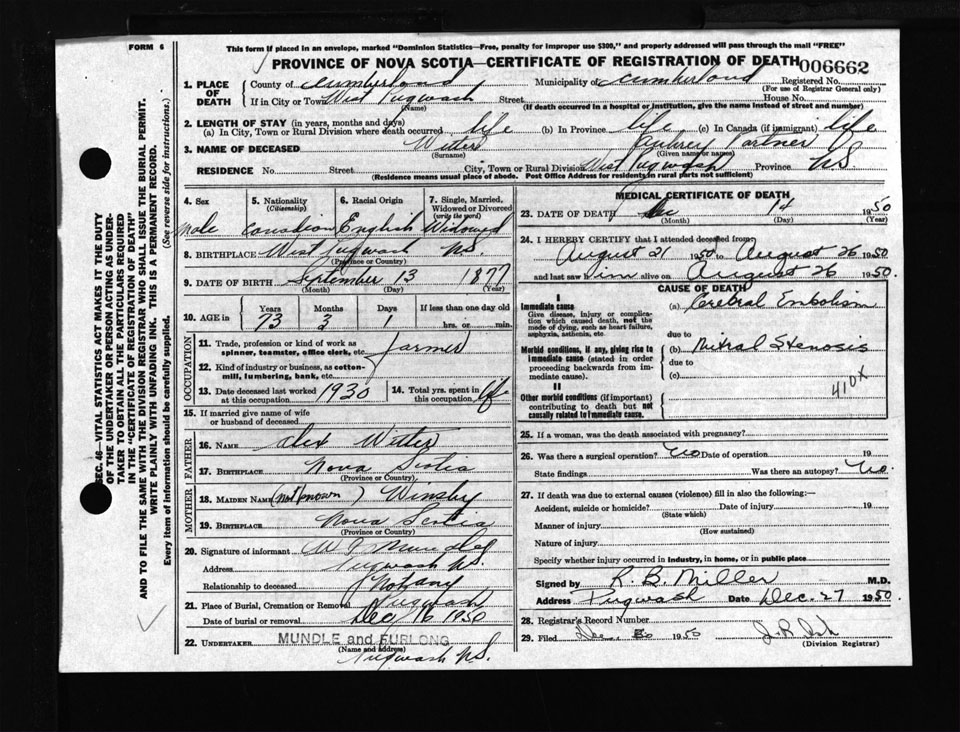 FORM 6
This form if placed in an envelope, marked "Dominion Statistics—Free, penalty for improper use $300," and properly addressed will pass through the mail "FREE"
PROVINCE OF NOVA SCOTIA—CERTIFICATE OF REGISTRATION OF DEATH
006662
SEC. 46—VITAL STATISTICS ACT MAKES IT THE DUTY
OF THE UNDERTAKER OR PERSON ACTING AS UNDER-
TAKER TO OBTAIN ALL THE PARTICULARS REQUIRED
IN THE "CERTIFICATE OF REGISTRATION OF DEATH"
AND TO FILE THE SAME WITH THE DIVISION REGISTRAR WHO SHALL ISSUE THE BURIAL PERMIT.
WRITE PLAINLY WITH UNFADING INK. THIS IS A PERMANENT RECORD.
Every item of information should be carefully supplied. (See reverse side for instructions.)
1. PLACE OF DEATH
County of Cumberland Municipality of Cumberland Registered No.
(For use of Registrar General only)
If in City or Town West Pugwash Street House No.
(Name) (If death occurred in a hospital or institution, give the name instead of street and number)
2. LENGTH OF STAY (in years, months and days)
(a) In City, Town or Rural Division where death occurred life (b) In Province life (c) In Canada (if immigrant) life
3. NAME OF DECEASED Witter Aubrey
(Surname) (Given name or names)
RESIDENCE No. Street City, Town or Rural Division West Pugwash Province N.S.
(Residence means usual place of abode. Post Office Address for residents in rural parts not sufficient)
4. Sex Male
5. Nationality (Citizenship) Canadian
6. Racial Origin English
7. Single, Married, Widowed or Divorced (write the word) Widowed
8. BIRTHPLACE West Pugwash N.S.
(Province or Country)
9. DATE OF BIRTH September 13 1877
(Month) (Day) (Year)
10. AGE in Years 73 Months 3 Days 1 If less than one day old hrs. or min.
OCCUPATION
11. Trade, profession or kind of work as spinner, teamster, office clerk, etc. farmer
12. Kind of industry or business, as cotton-mill, lumbering, bank, etc.
13. Date deceased last worked at this occupation 1930
14. Total yrs. spent in this occupation life
15. If married give name of wife or husband of deceased
FATHER
16. NAME Alex Witter
17. BIRTHPLACE Nova Scotia
(Province or Country)
MOTHER
18. MAIDEN NAME (not known)
19. BIRTHPLACE Nova Scotia
(Province or Country)
20. Signature of informant
Address Pugwash N.S.
Relationship to deceased
21. Place of Burial, Cremation or Removal Pugwash
Date of burial or removal Dec 16 1950
22. UNDERTAKER MUNDLE and FURLONG
(Name and Address)
Pugwash N.S.
MEDICAL CERTIFICATE OF DEATH
23. DATE OF DEATH Dec 14 1950
(Month) (Day)
24. I HEREBY CERTIFY that I attended deceased from
August 21 1950 to August 26 1950
and last saw him alive on August 26 1950.
CAUSE OF DEATH
I
Immediate cause (a) Cerebral Embolism
Give disease, injury or complication which caused death, not the mode of dying, such as heart failure, asphyxia, asthenia, etc.
due to
Morbid conditions, if any, giving rise to immediate cause (stated in order proceeding backwards from immediate cause). (b) Mitral Stenosis
due to
(c)
410X
II
Other morbid conditions (if important) contributing to death but not causally related to immediate cause.
25. If a woman, was the death associated with pregnancy?
26. Was there a surgical operation? No Date of operation 19
State findings Was there an autopsy? No.
27. If death was due to external causes (violence) fill in also the following:—
Accident, suicide or homicide? Date of injury 19
(State which)
Manner of injury
(How sustained)
Nature of injury
Specify whether injury occurred in industry, in home, or in public place
Signed by K. B. Miller M.D.
Address Pugwash Date Dec. 27 1950.
28. Registrar's Record Number
29. Filed Dec. 1950
(Division Registrar)